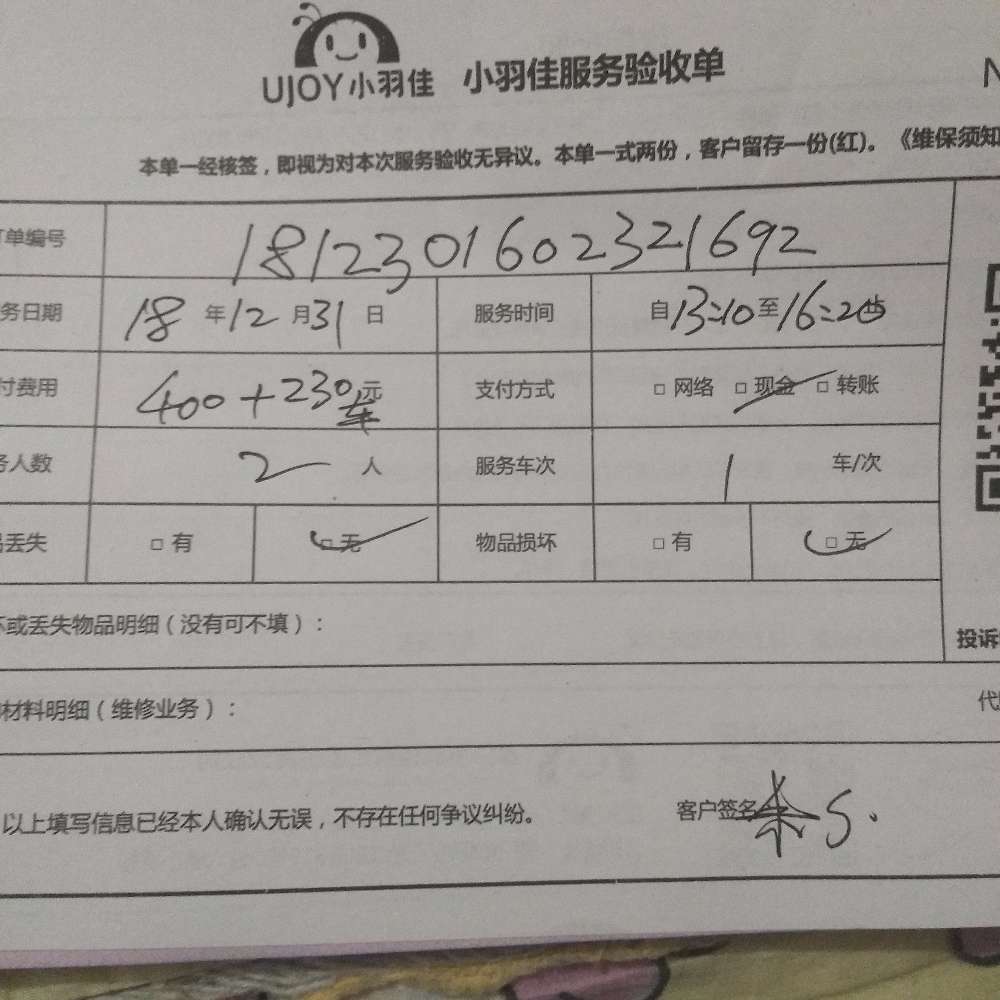 UJOY小羽佳 小羽佳服务验收单 N
本单一经核签，即视为对本次服务验收无异议。本单一式两份，客户留存一份(红)。《维保须知
单编号 1812301602321692
务日期 18 年 12 月 31 日 服务时间 自 13:10 至 16:20
付费用 400+230 元 车 支付方式 □ 网络 □ 现金 □ 转账
务人数 2 人 服务车次 1 车/次
品丢失 □ 有 □ 无 物品损坏 □ 有 □ 无
坏或丢失物品明细（没有可不填）：
投诉
材料明细（维修业务）：
以上填写信息已经本人确认无误，不存在任何争议纠纷。 客户签名